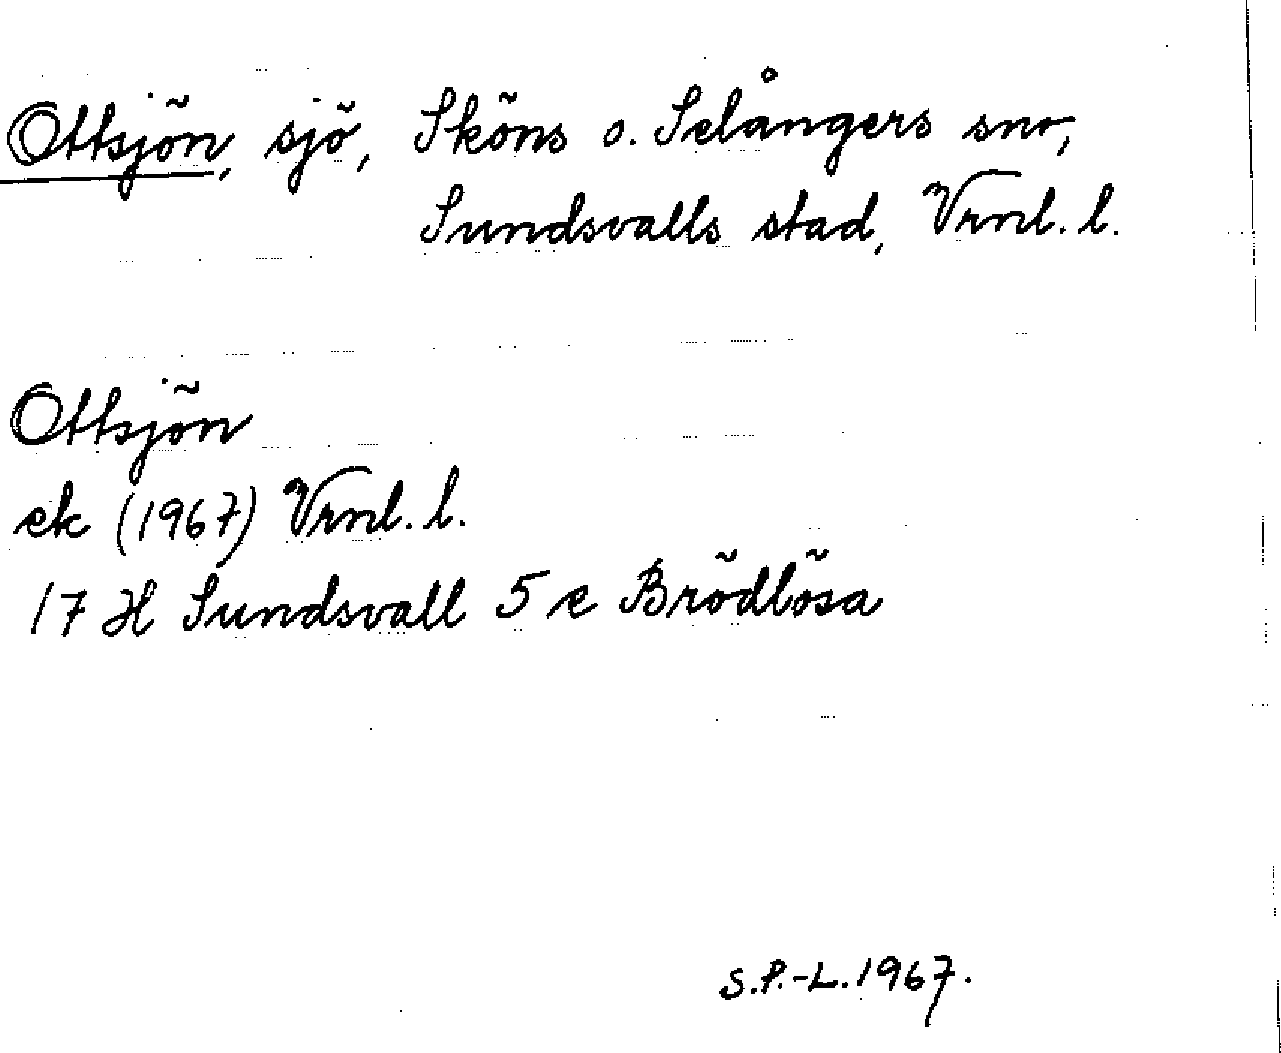 Ottsjön, sjö, Sköns o. Selångers snr,
Sundsvalls stad, Vrnl. l.
Ottsjön
ek (1967) Vrnl. l.
17 H Sundsvall 5 e Brödlösa
S.P.-L. 1967.